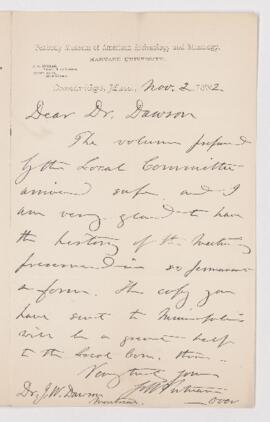 Peabody Museum of American Archæology and Ethnology,
HARVARD UNIVERSITY.
Cambridge, Mass., Nov. 2 1882
Dear Dr. Dawson
The volume prepared
by the Local Committee
arrived safe and I
am very glad to have
the history of the meeting
preserved in so permanent
a form. The copy you
have sent to Minneapolis
will be a great help
to the Local Com. there.
Very truly yours
F W Putnam
Dr. J. W. Dawson
Montreal. over